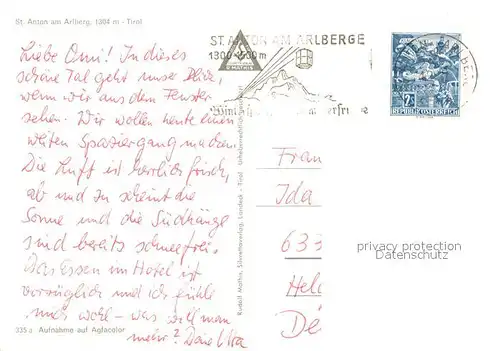 St. Anton am Arlberg, 1304 m - Tirol
Liebe Omi! In dieses
schöne Tal geht unser Blick,
wenn wir aus dem Fenster
sehen. Wir wollen heute einen
weiten Spaziergang machen.
Die Luft ist herrlich frisch,
ab und zu scheint die
Sonne und die Südhänge
sind bereits schneefrei.
Das Essen im Hotel ist
vorzüglich und ich fühle
mich wohl - was will man
mehr? Deine
335 a Aufnahme auf Agfacolor
Rudolf Mathis, Silvrettaverlag, Landeck - Tirol
ST. ANTON AM ARLBERG
REPUBLIK ÖSTERREICH
Frau
Ida
633
privacy protection
Datenschutz